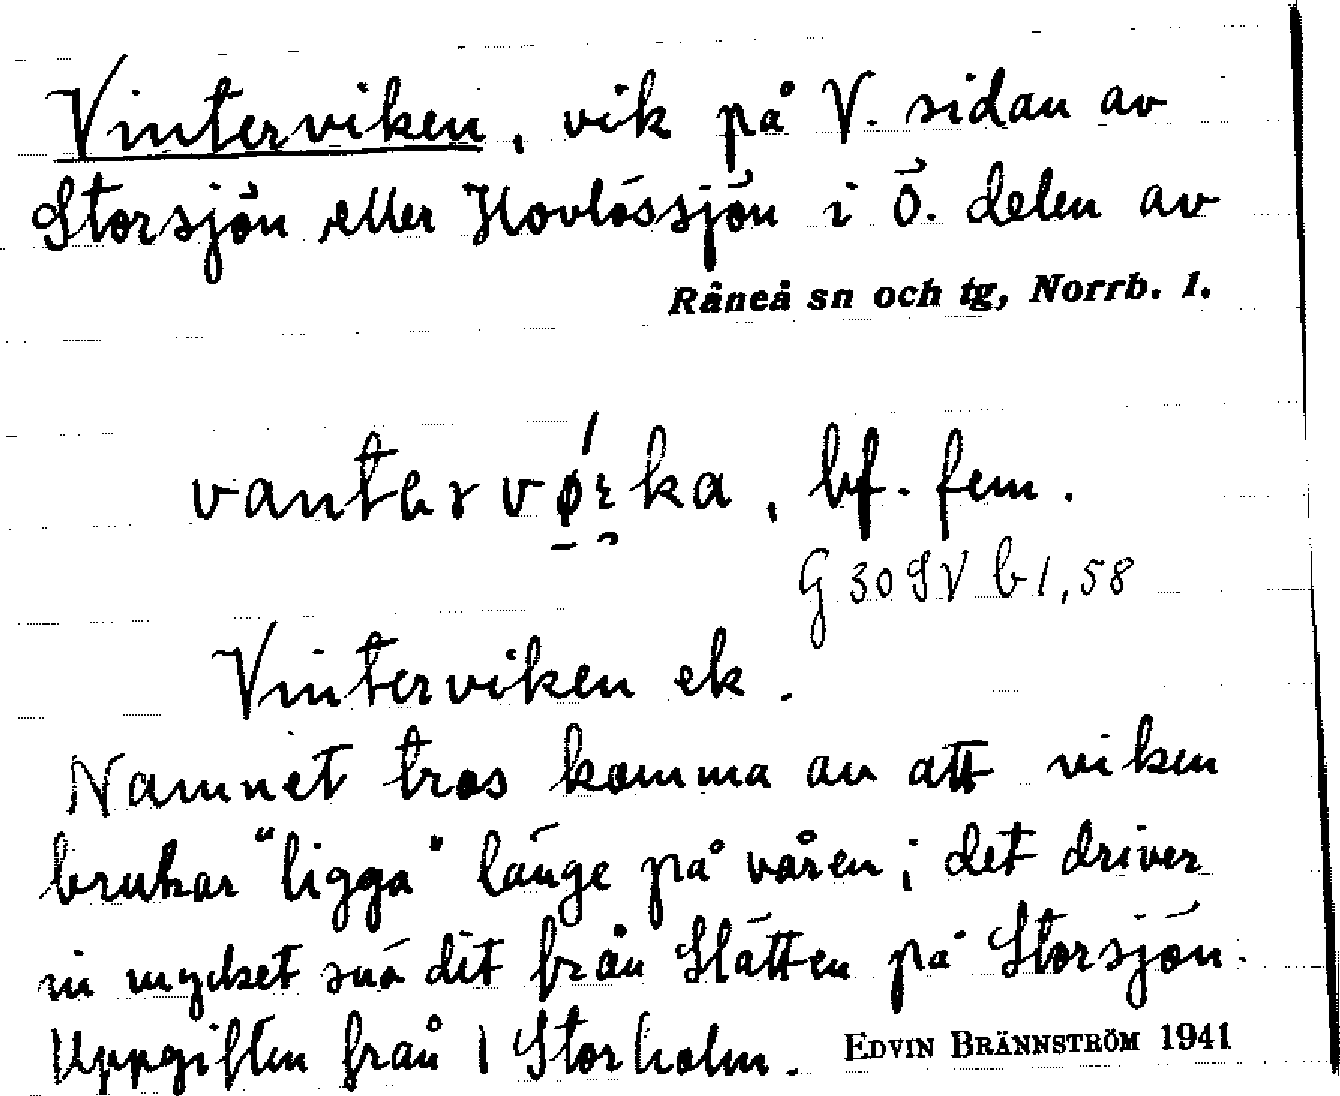 Vinterviken, vik på V. sidan av
Storsjön eller Hovlössjön i Ö. delen av
Råneå sn och tg, Norrb. l.
bf. fem.
G 30 SV b 1, 58
Vinterviken ek.
Namnet tros komma av att viken
brukar "ligga" länge på våren; det driver
in mycket snö dit från Slätten på Storsjön.
Uppgiften från 1 Storholm. EDVIN BRÄNNSTRÖM 1941